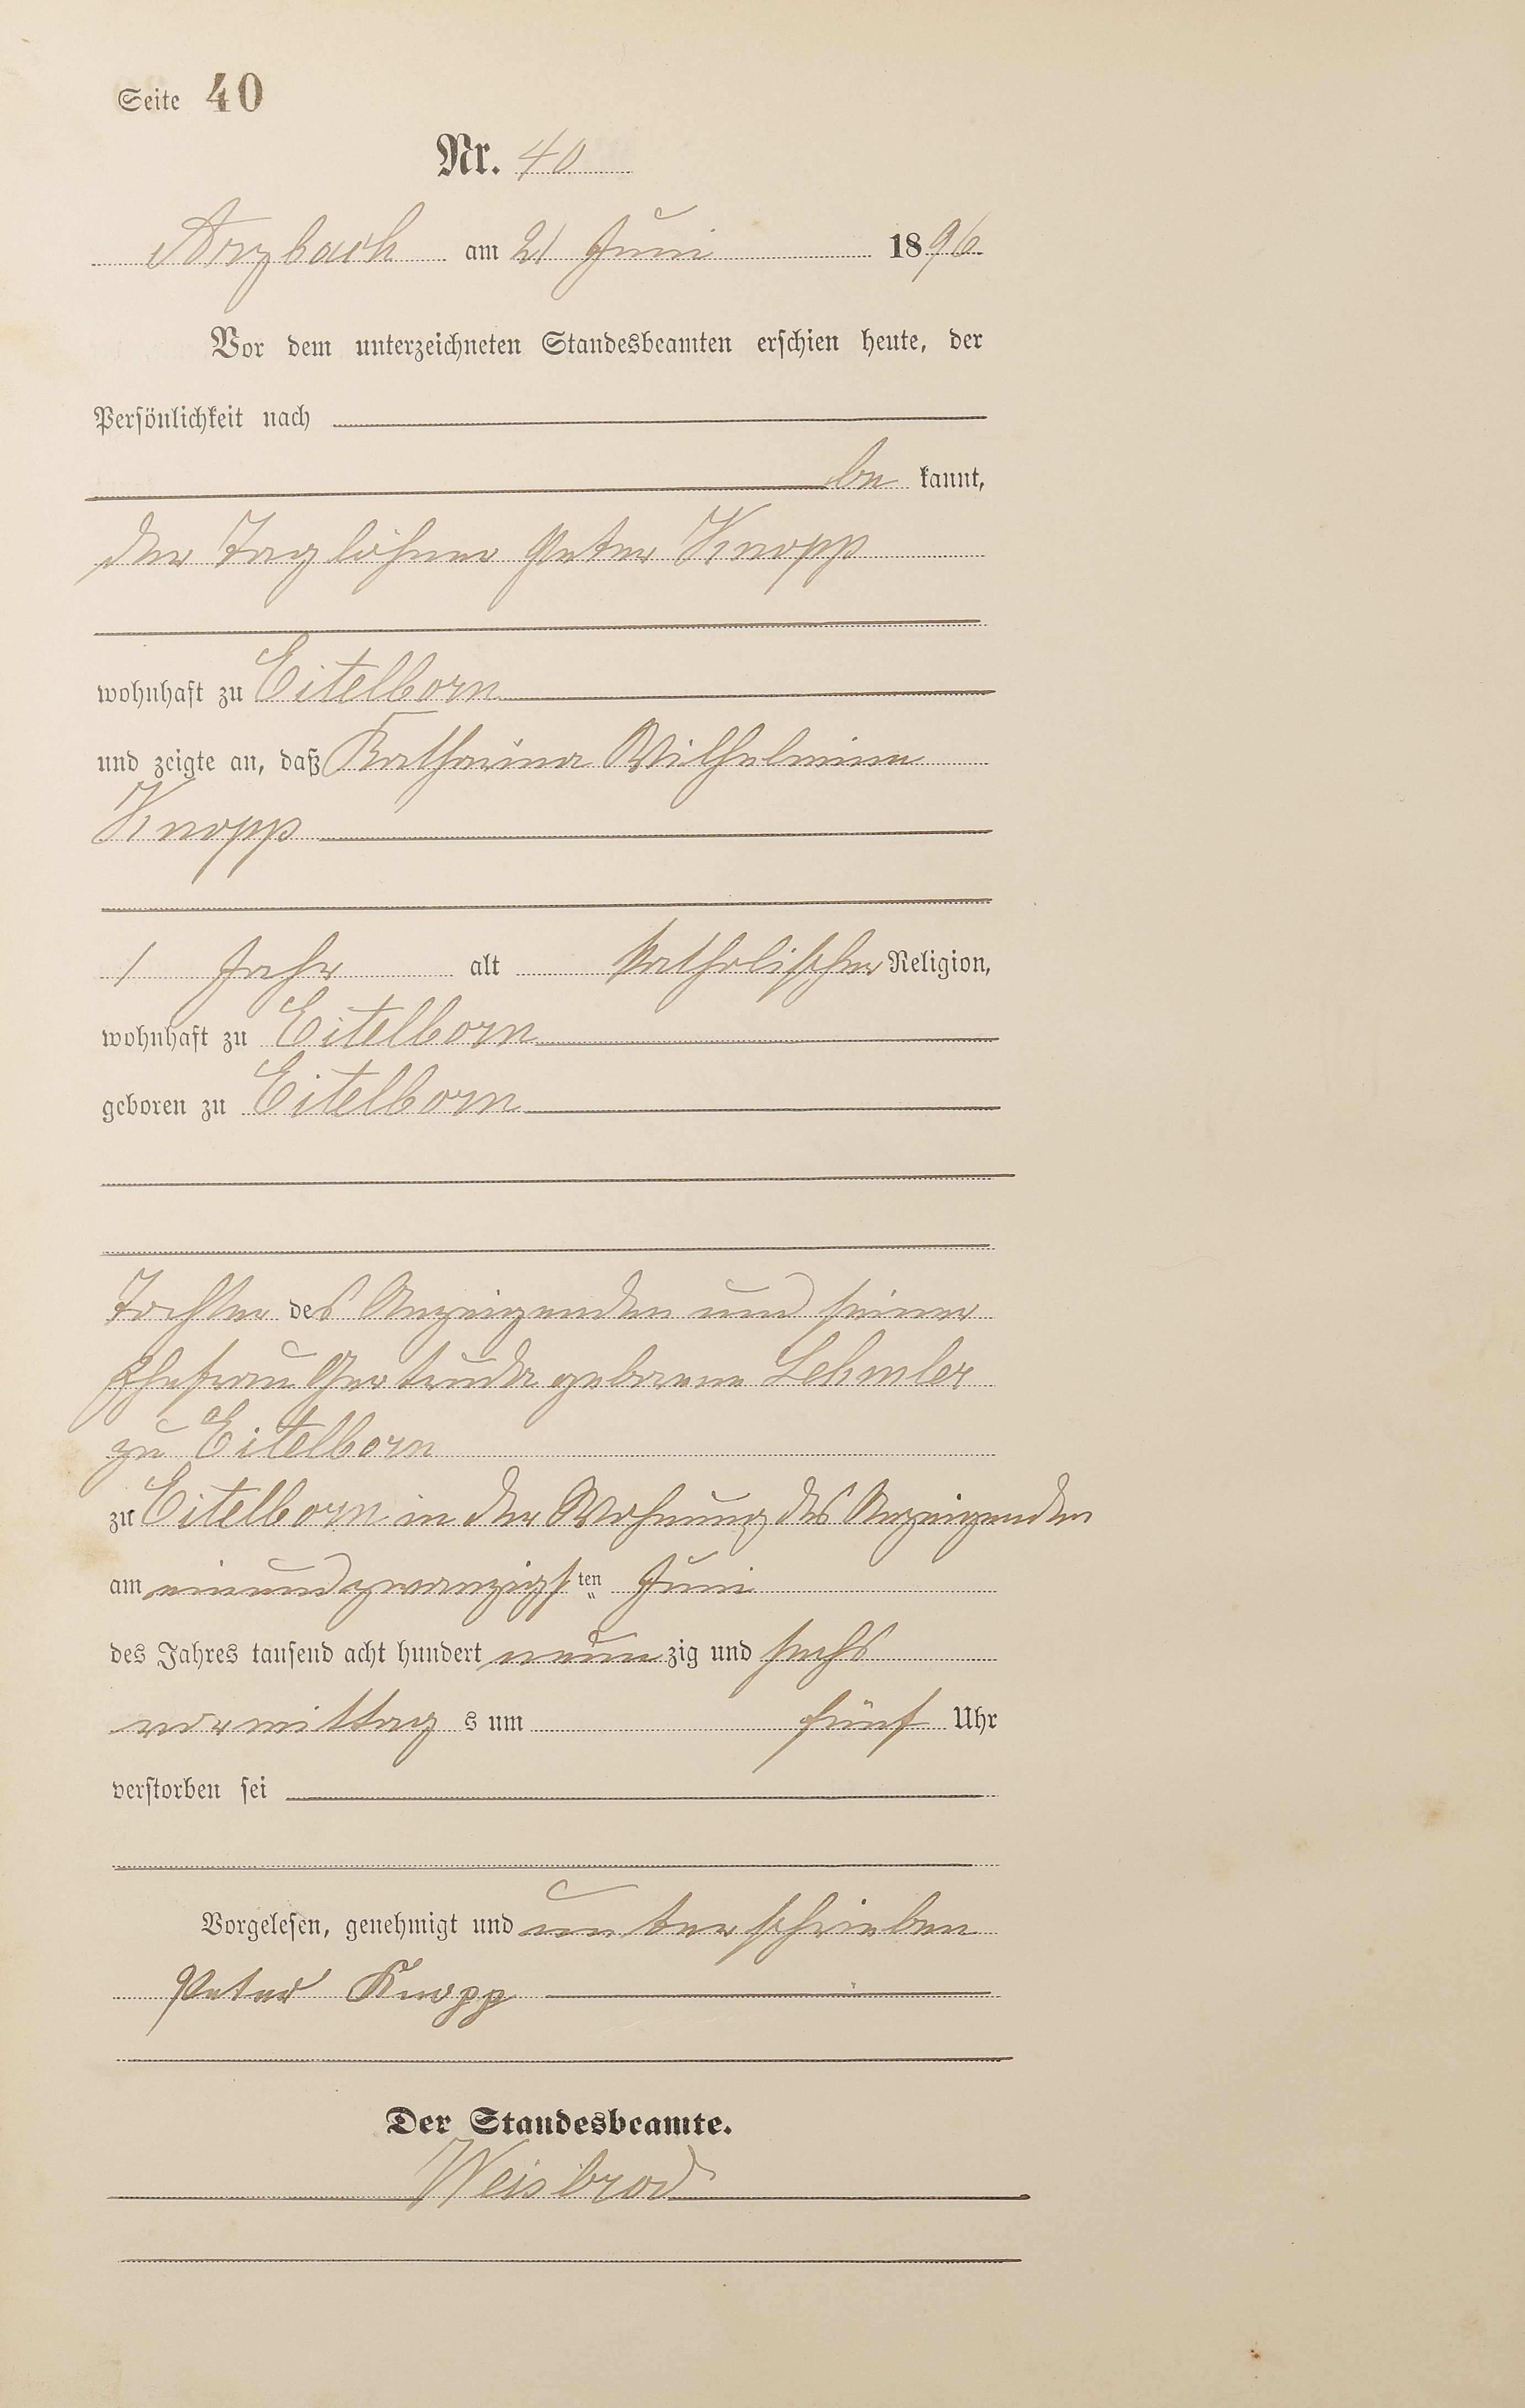 Seite 40
Nr. 40
Arzbach am 21 Juni 1896
Vor dem unterzeichneten Standesbeamten erschien heute, der
Persönlichkeit nach
be kannt,
der Taglöhner Peter Knopp
wohnhaft zu Eitelborn
und zeigte an, daß Katharina Wilhelmina
Knopp
1 Jahr alt katholischer Religion,
wohnhaft zu Eitelborn
geboren zu Eitelborn
Tochter des Anzeigenden und seiner
Ehefrau Gertruda geborene Lehmler
zu Eitelborn
zu Eitelborn in der Wohnung des Anzeigenden
am einundzwanzigsten Juni
des Jahres tausend acht hundert neunzig und sechs
vormittag s um fünf Uhr
verstorben sei
Vorgelesen, genehmigt und unterschrieben
Peter Knopp
Der Standesbeamte.
Weisbrod